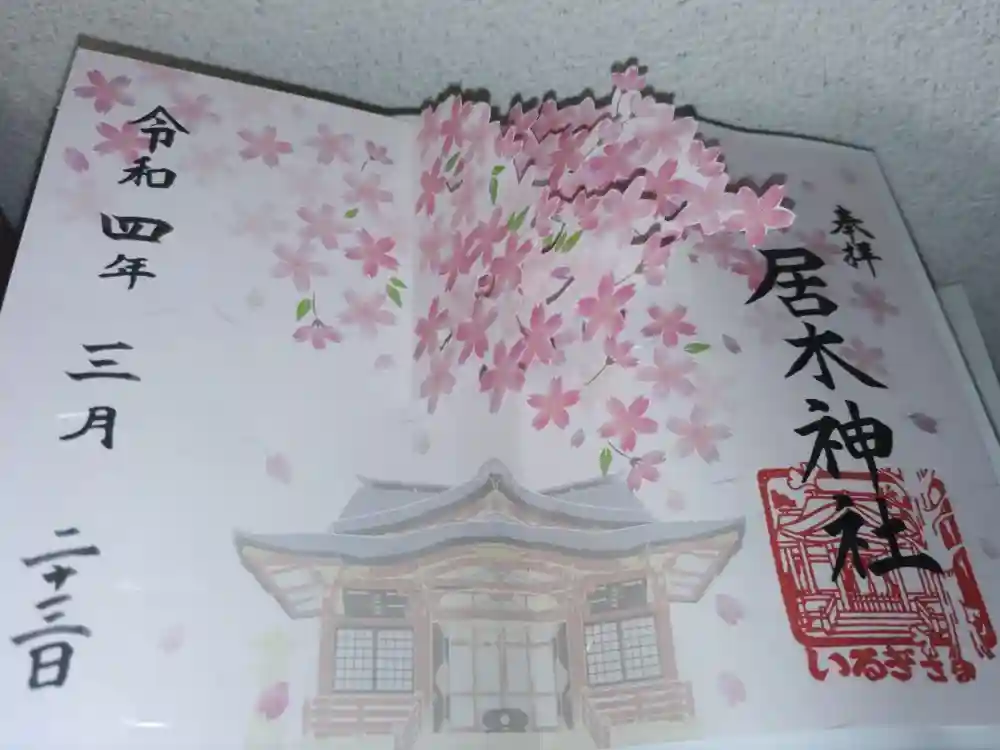 奉拝
居木神社
いるぎさま
令和四年三月二十三日